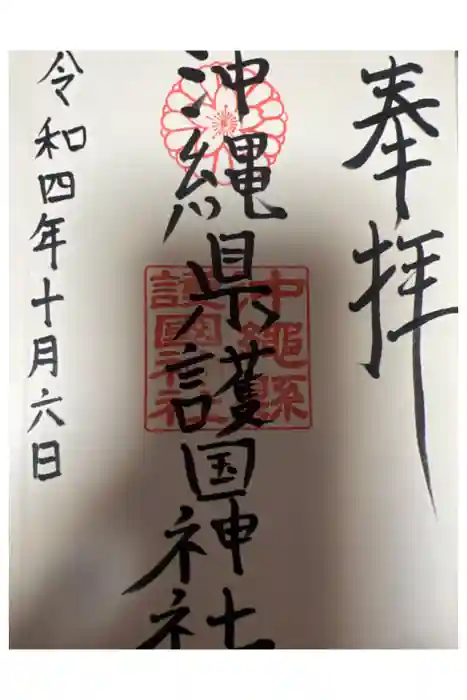 奉拝
沖縄県護国神社
沖縄縣
護國神社
令和四年十月六日